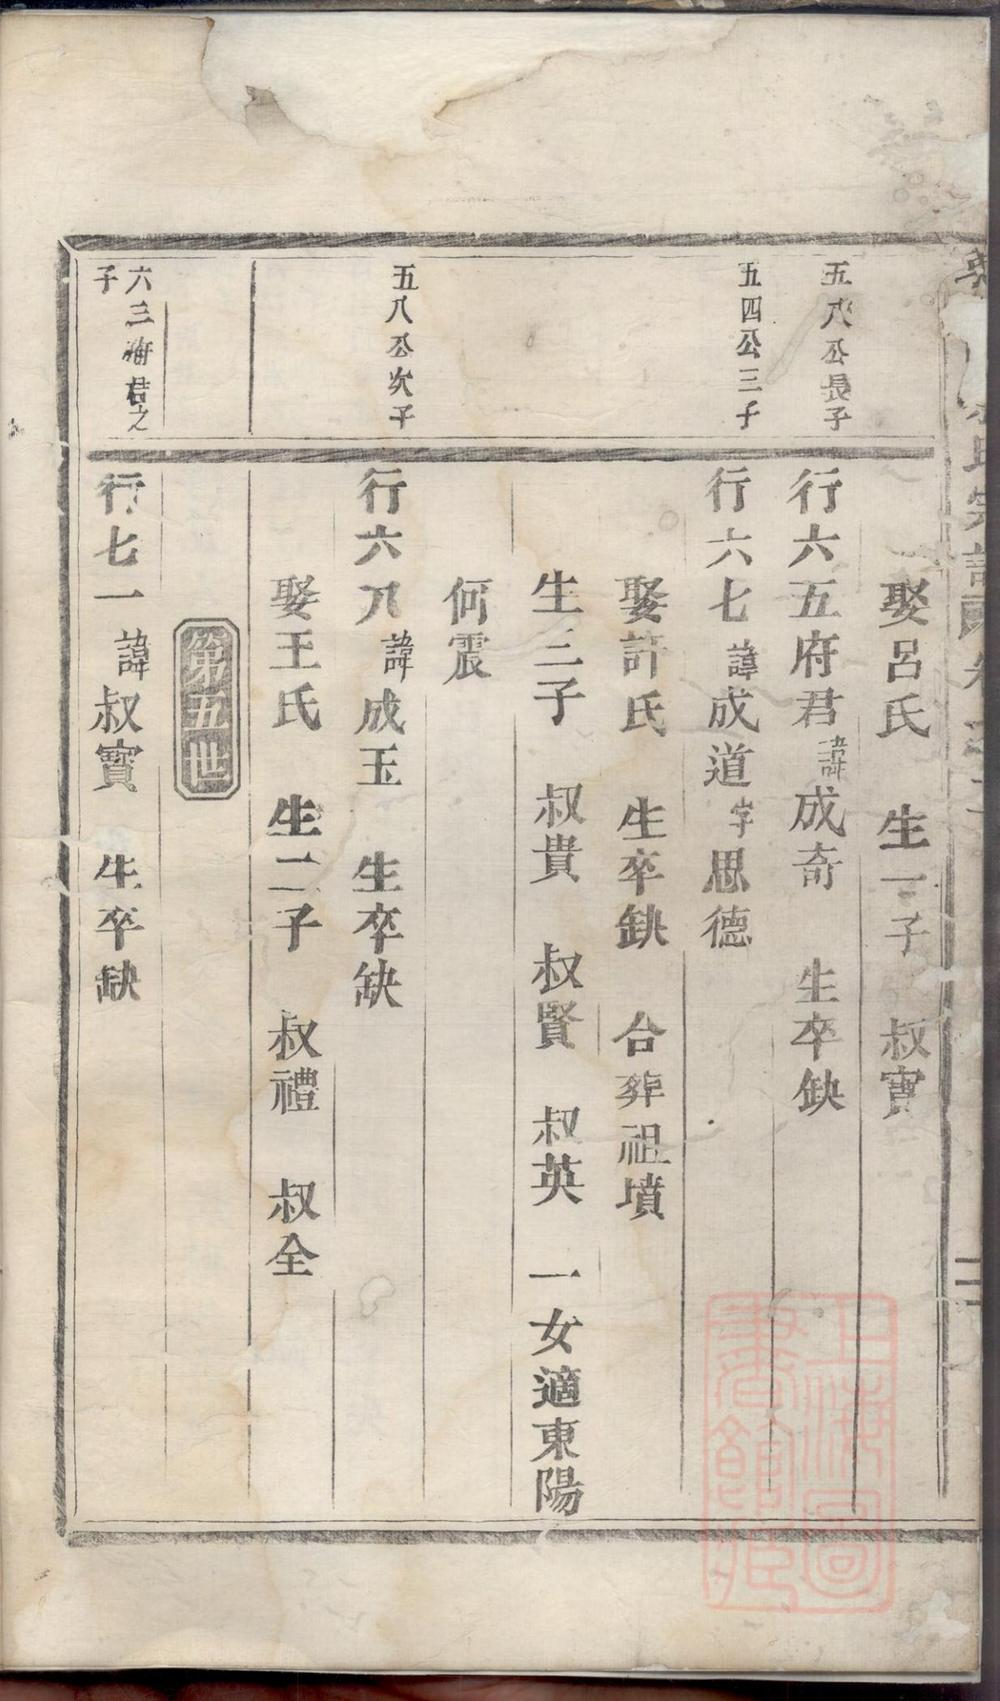 娶呂氏 生一子 叔寳
五八公長子
行六五府君諱成奇 生卒缺
五四公三子
行六七諱成道字思德
娶許氏 生卒缺 合葬祖墳
生三子 叔貴 叔賢 叔英 一女適東陽
何震
五八公次子
行六八諱成玉 生卒缺
娶王氏 生二子 叔禮 叔全
第五世
六三府君之
子
行七一諱叔寳 生卒缺
上海圖
書館藏